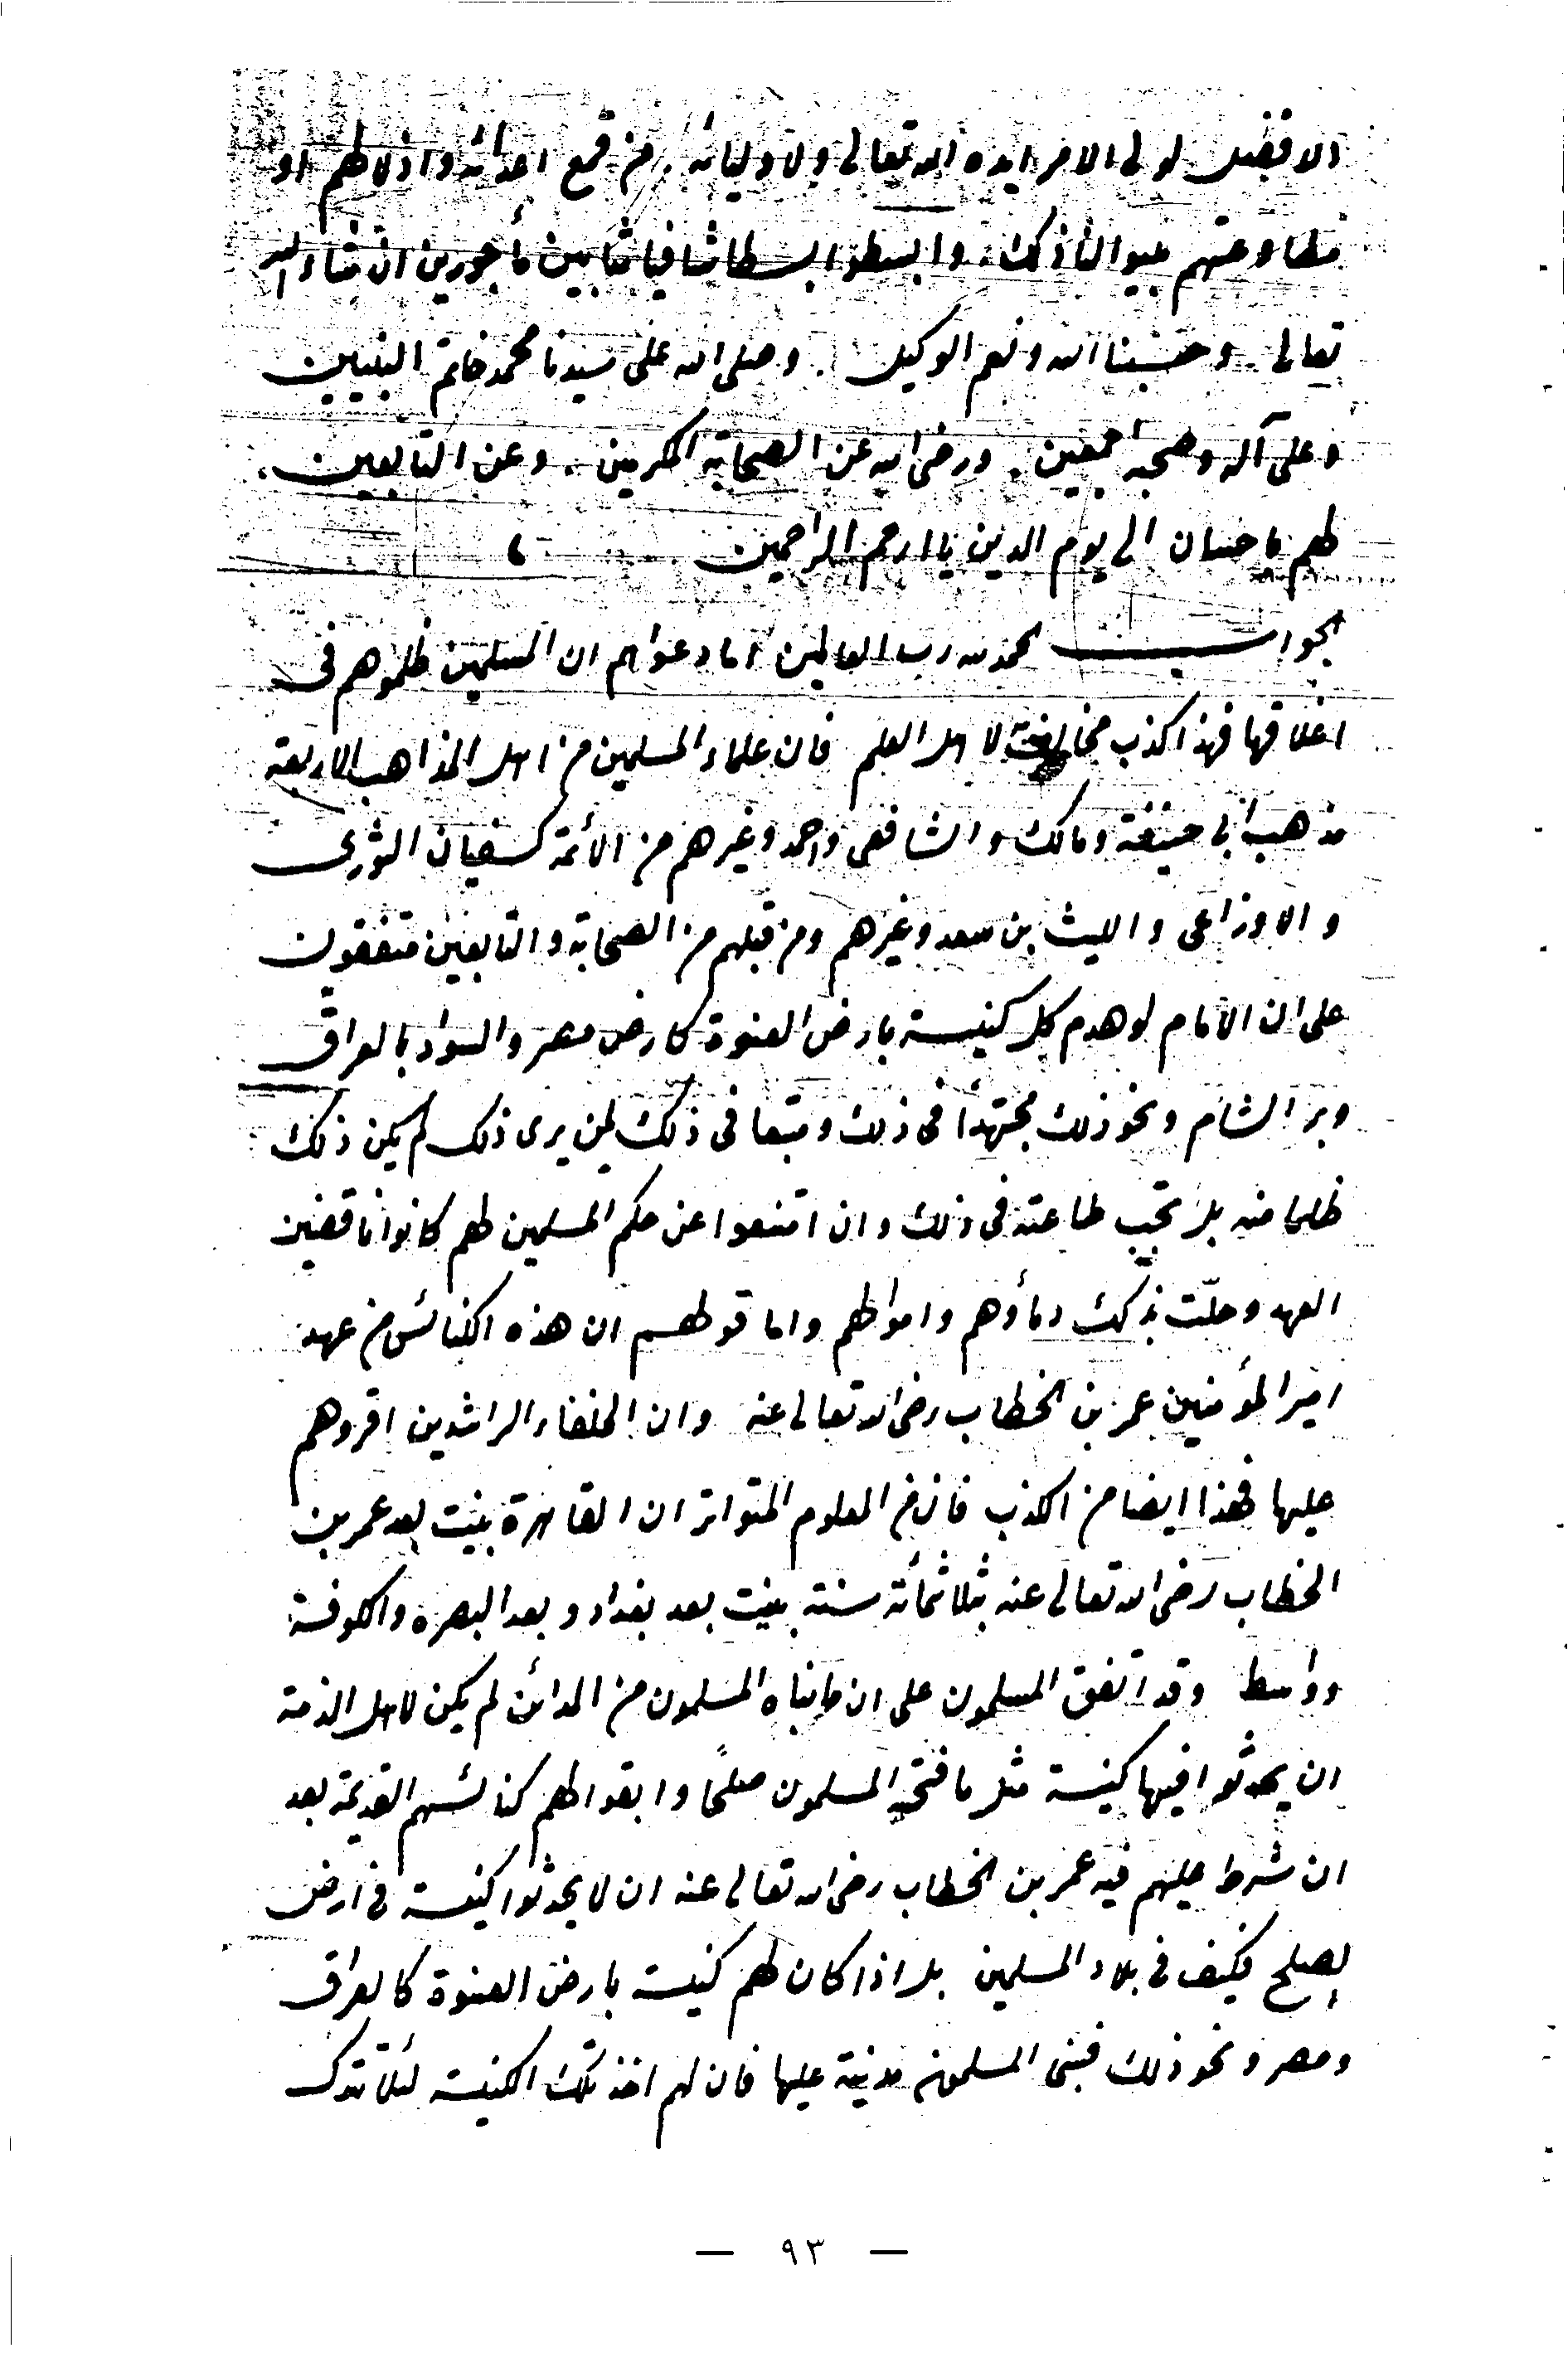 الافضل لولى الامر ايده الله تعالى ولاوليائه . من قمع اعدائه واذلالهم او
مطاوعتهم بينوا لنا ذلك . وابسطوا بسطا شافيا مثابين مأجورين ان شاء الله
تعالى . وحسبنا الله ونعم الوكيل . وصلى الله على سيدنا محمد خاتم النبيين
وعلى آله وصحبه اجمعين . ورضى الله عن الصحابة المكرمين . وعن التابعين .
لهم باحسان الى يوم الدين يا ارحم الراحمين ،
الجواب الحمد لله رب العالمين اما دعواهم ان المسلمين ظلموهم فى
اغلاقها فهذا كذب مخالف لاهل العلم فان علماء المسلمين من اهل المذاهب الاربعة
مذهب ابى حنيفة ومالك والشافعى واحمد وغيرهم من الأئمة كسفيان الثورى
والاوزاعى والليث بن سعد وغيرهم ومن قبلهم من الصحابة والتابعين متفقون
على ان الامام لو هدم كل كنيسة بارض العنوة كارض مصر والسواد بالعراق
وبر الشام ونحو ذلك مجتهدًا فى ذلك ومتبعا فى ذلك لمن يرى ذلك لم يكن ذلك
ظلما منه بل تجب طاعته فى ذلك وان امتنعوا عن حكم المسلمين لهم كانوا ناقضين
العهد وحلّت بذلك دمأؤهم واموالهم واما قولهم ان هذه الكنائس من عهد
امير المؤمنين عمر بن الخطاب رضى الله تعالى عنه وان الخلفاء الراشدين اقروهم
عليها فهذا ايضا من الكذب فان من المعلوم المتواتر ان القاهرة بنيت بعد عمر بن
الخطاب رضى الله تعالى عنه بثلاثمأئة سنة بنيت بعد بغداد وبعد البصره والكوفة
وواسط وقد اتفق المسلمون على ان ما بناه المسلمون من المدائن لم يكن لاهل الذمة
ان يحدثوا فيها كنيسة مثل ما فتحه المسلمون صلحًا وابقوا لهم كنائسهم القديمة بعد
ان شرط عليهم فيه عمر بن الخطاب رضى الله تعالى عنه ان لا يحدثوا كنيسة فى ارض
الصلح فكيف فى بلاد المسلمين بل اذا كان لهم كنيسة بارض العنوة كالعراق
ومصر ونحو ذلك فبنى المسلمون مدينة عليها فان لهم اخذ تلك الكنيسة لئلا تترك
— ٩٣ —